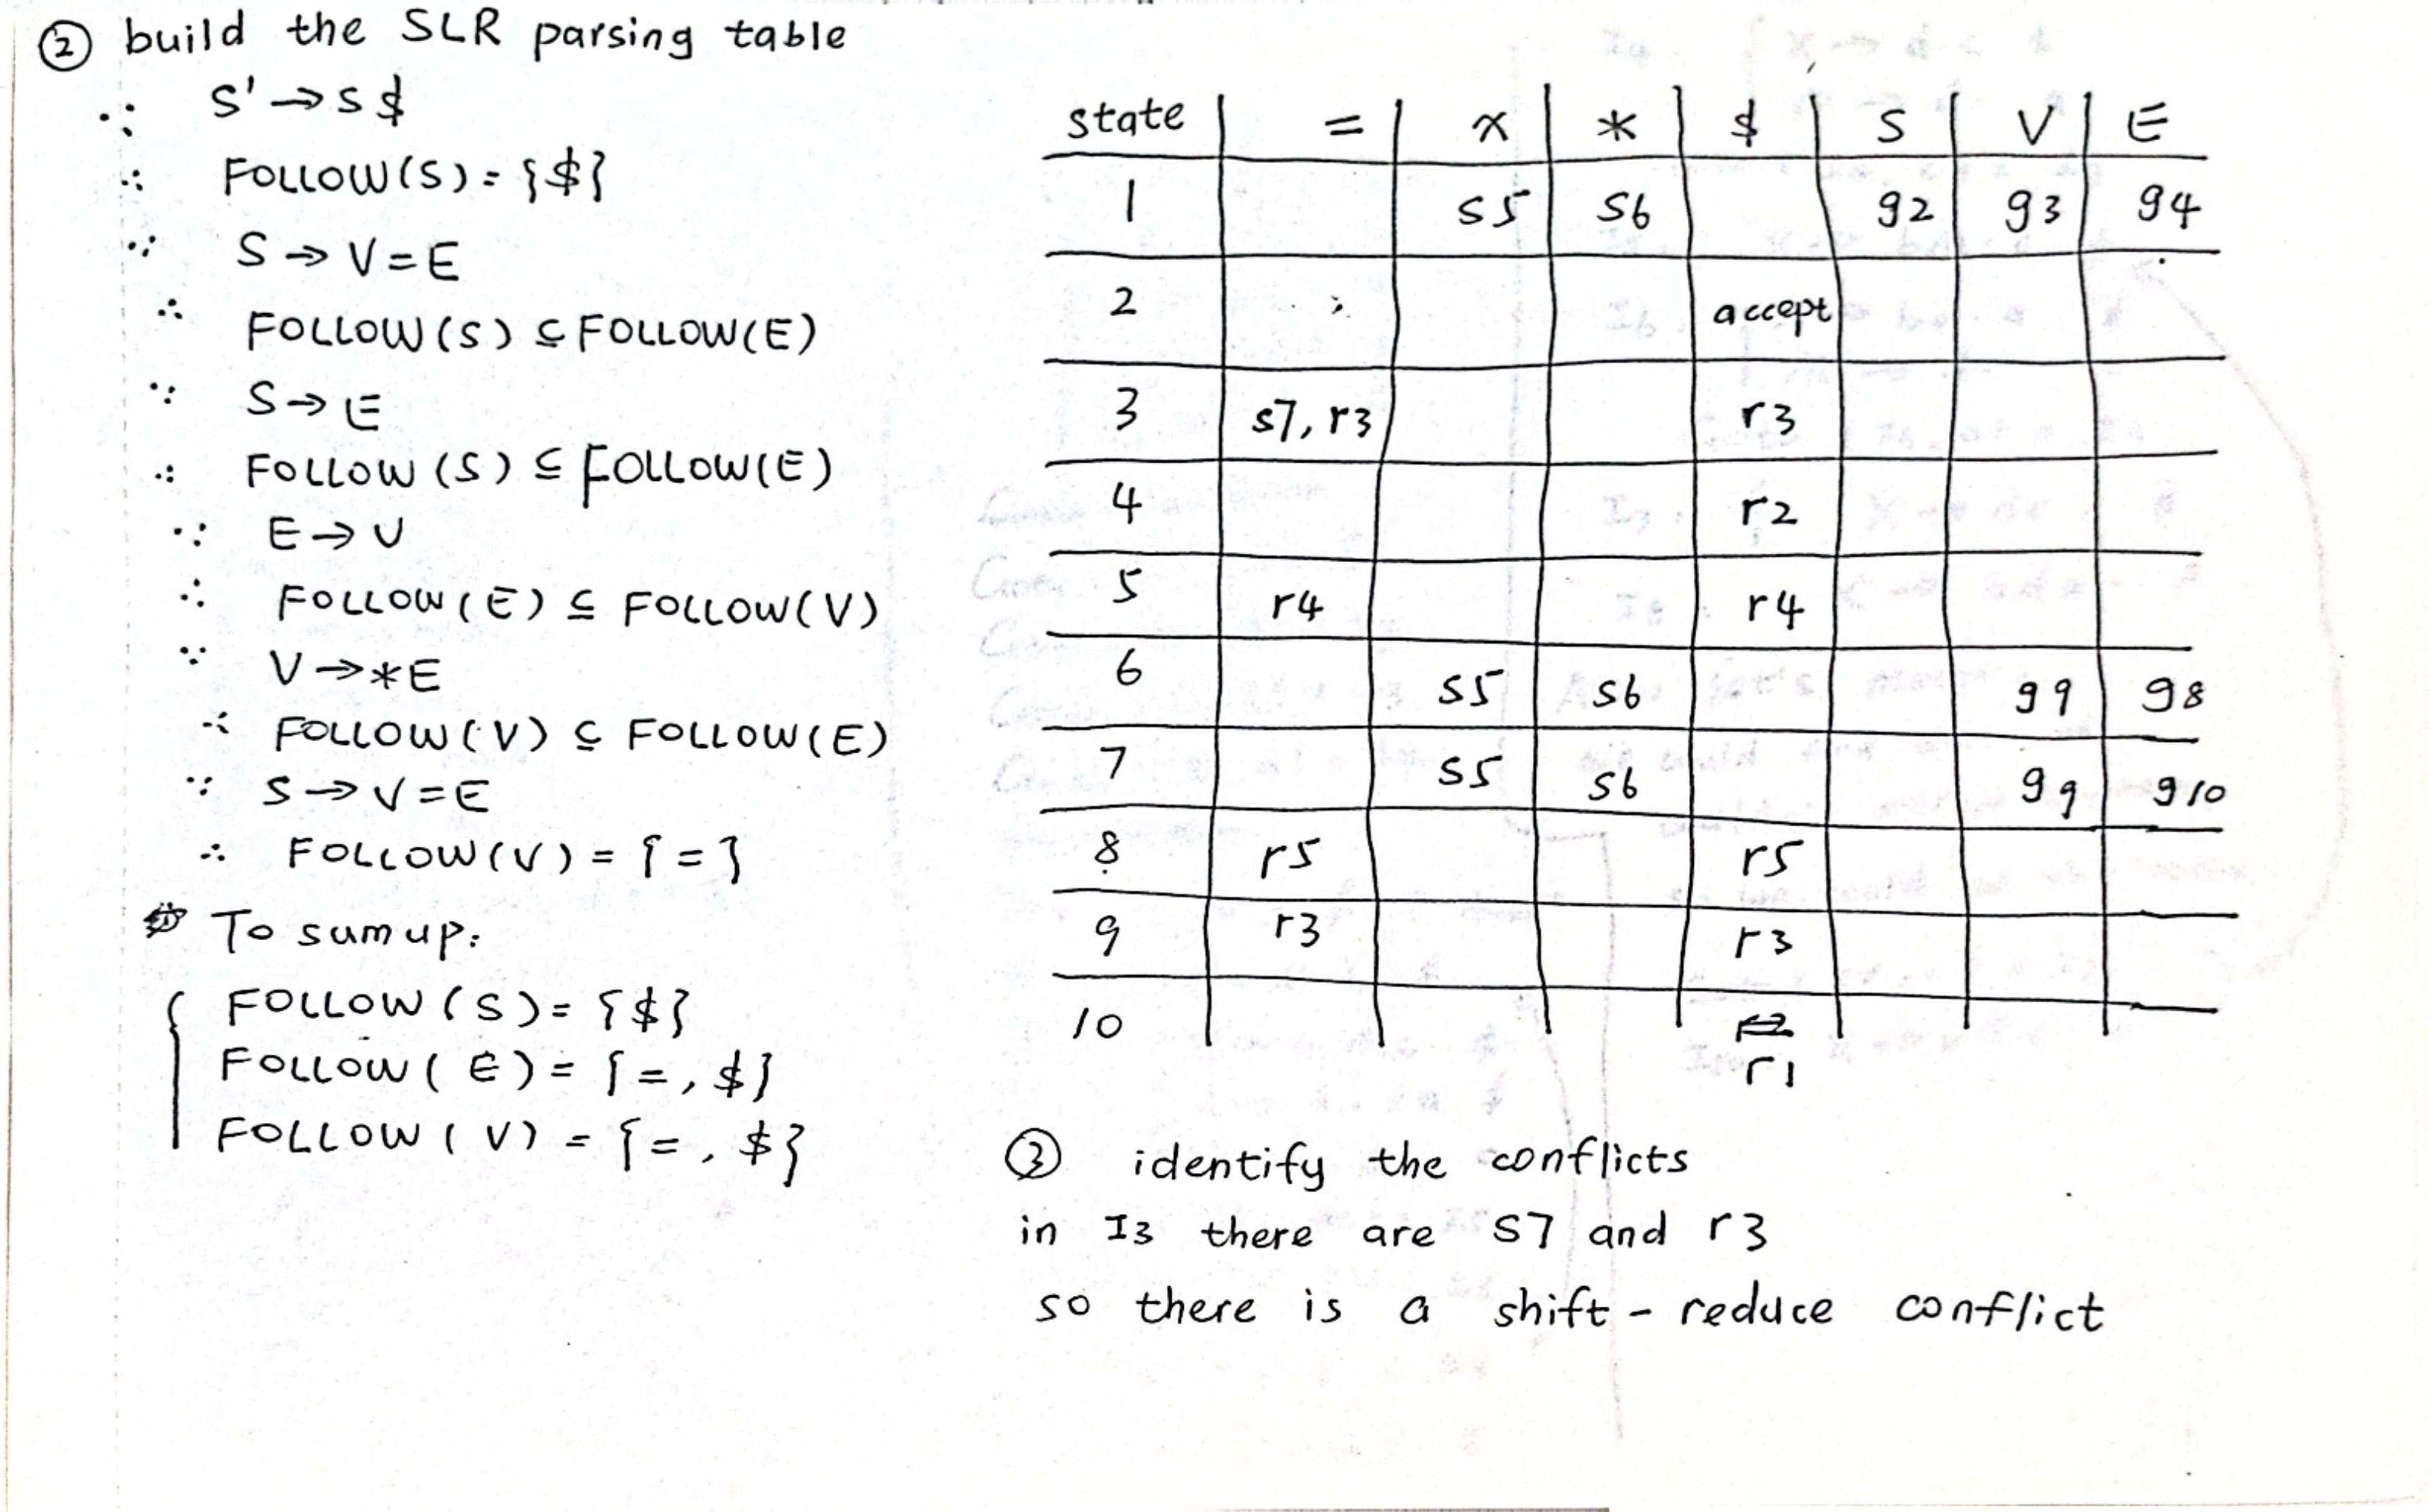 ② build the SLR parsing table
∵ S' → S $
∴ FOLLOW(S) = {$}
∵ S → V = E
∴ FOLLOW(S) ⊆ FOLLOW(E)
∵ S → E
∴ FOLLOW(S) ⊆ FOLLOW(E)
∵ E → V
∴ FOLLOW(E) ⊆ FOLLOW(V)
∵ V → * E
∴ FOLLOW(V) ⊆ FOLLOW(E)
∵ S → V = E
∴ FOLLOW(V) = { = }
To sum up:
FOLLOW(S) = {$}
FOLLOW(E) = { =, $}
FOLLOW(V) = { =, $}
state = x * $ S V E
1 s5 s6 g2 g3 g4
2 accept
3 s7, r3 r3
4 r2
5 r4 r4
6 s5 s6 g9 g8
7 s5 s6 g9 g10
8 r5 r5
9 r3 r3
10 r1
③ identify the conflicts
in I3 there are S7 and r3
so there is a shift - reduce conflict